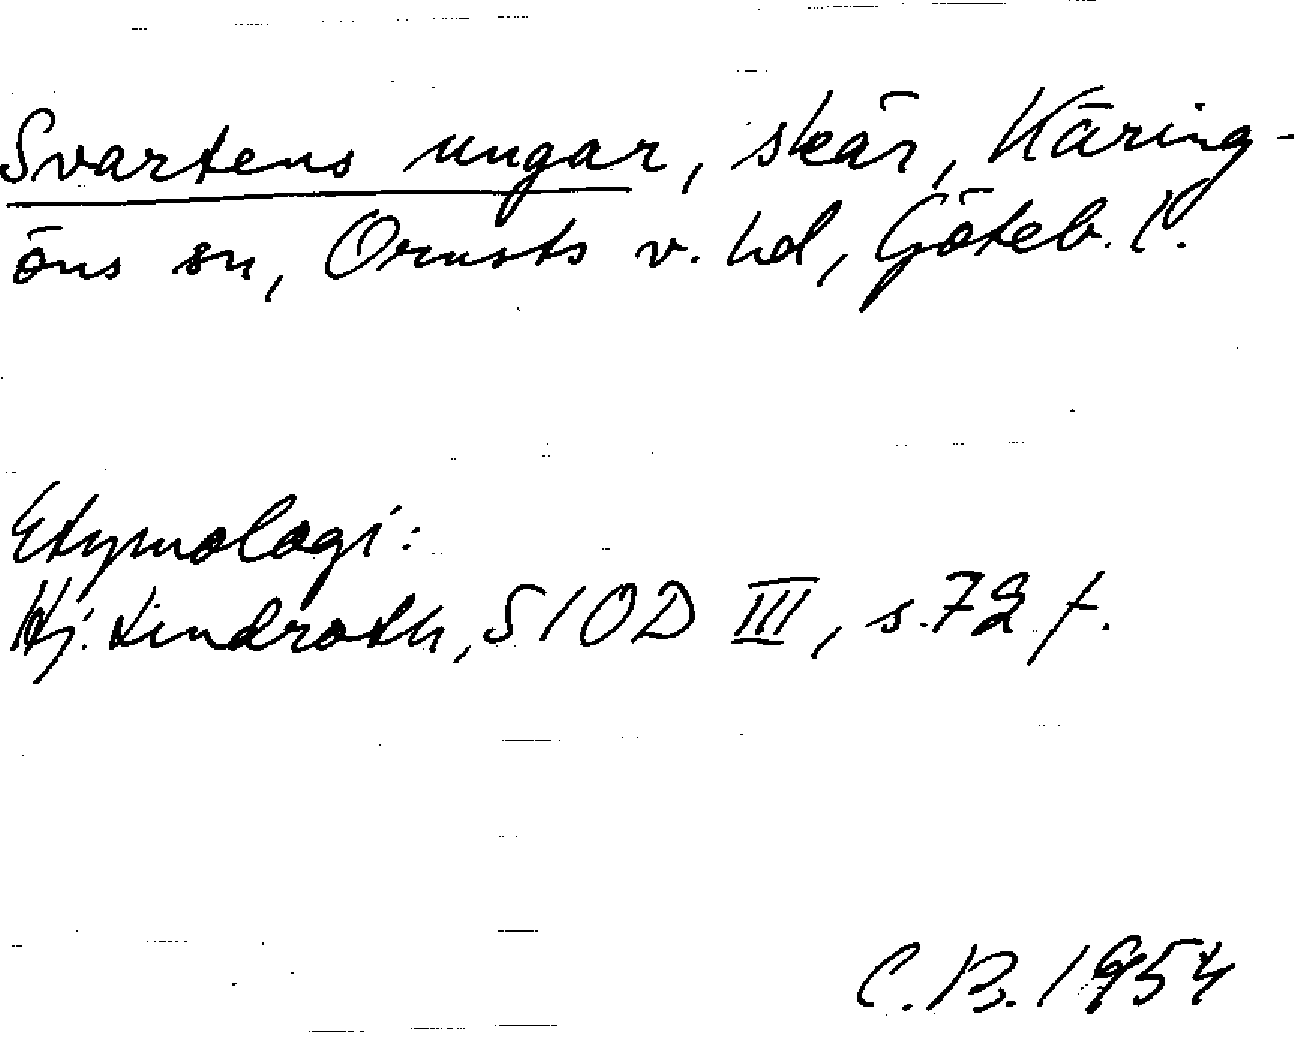 Svartens ungar, skär, Käring-
öns sn, Orusts v. hd, Göteb. l.
Etymologi:
Hj. Lindroth, SIOD III, s. 72 f.
C. B. 1954